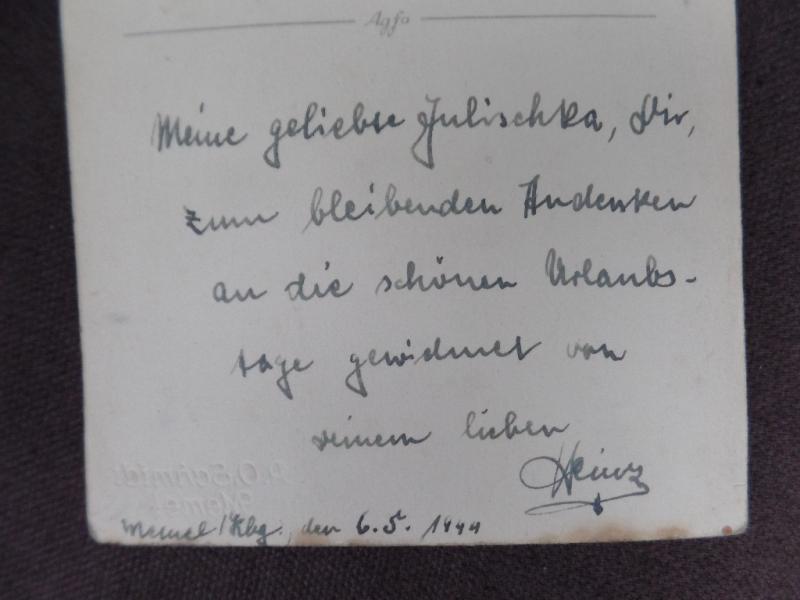 Agfa
Meine geliebte Julischka, Dir,
zum bleibenden Andenken
an die schönen Urlaubs-
tage gewidmet von
deinem lieben
Heinz
Memel/Kbg., den 6.5. 1944
O. Schmidt
Memel